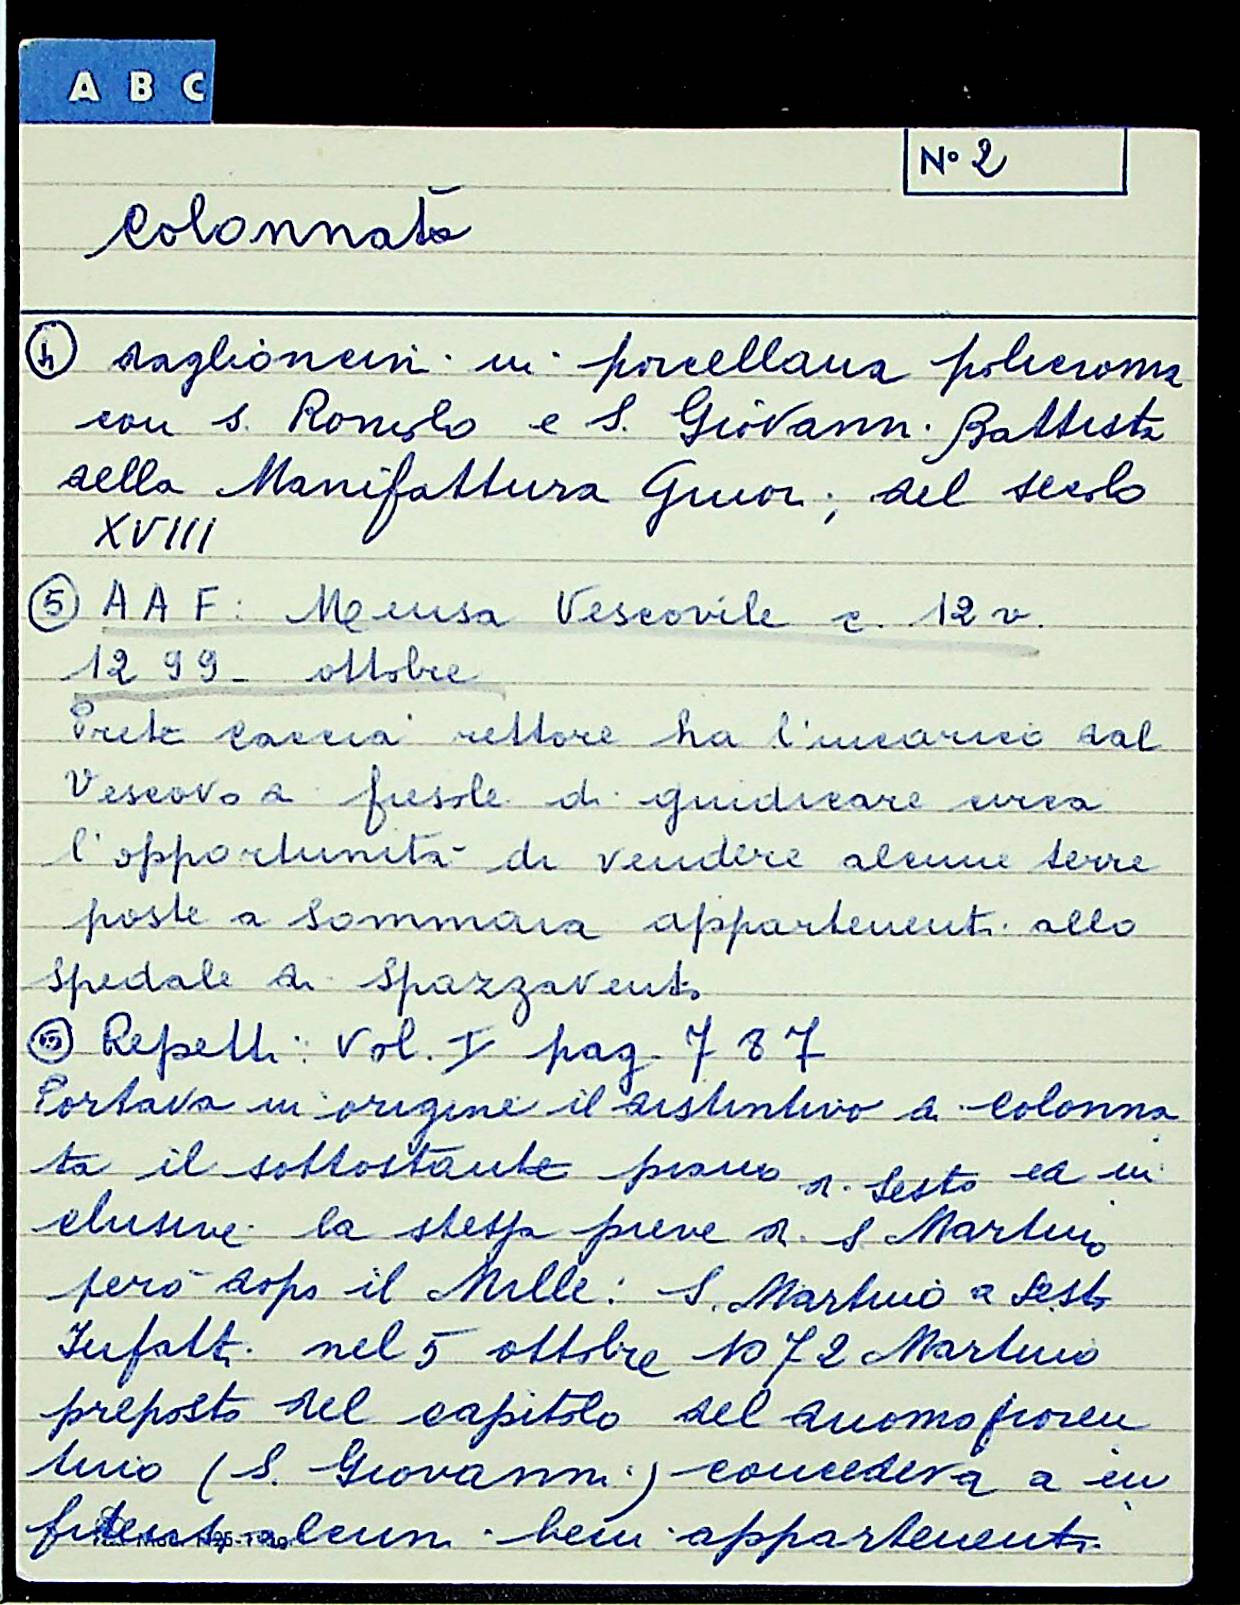 A B C
N° 2
Colonnata
④ Medaglioncini in porcellana policroma
con S. Romolo e S. Giovanni Battista
della Manifattura Ginori; del secolo
XVIII
⑤ AAF: Mensa Vescovile c. 12 v.
1299 - ottobre
Prete Caccia rettore ha l'incarico dal
Vescovo di fiesole di guidicare circa
l'opportunità di vendere alcune terre
poste a Sommaia appartenenti allo
Spedale di Spazzavento
⑥ Repetti: Vol. I pag. 787
Portava in origine il distintivo di Colonna
ta il sottostante piano di Sesto ed in
clusive la stessa pieve di S Martino
però dopo il Mille: S. Martino a Sesto
Infatti nel 5 ottobre 1072 Martino
preposto del capitolo del duomo fioren
tino (S. Giovanni) concedeva a en
fiteusi alcuni beni appartenenti